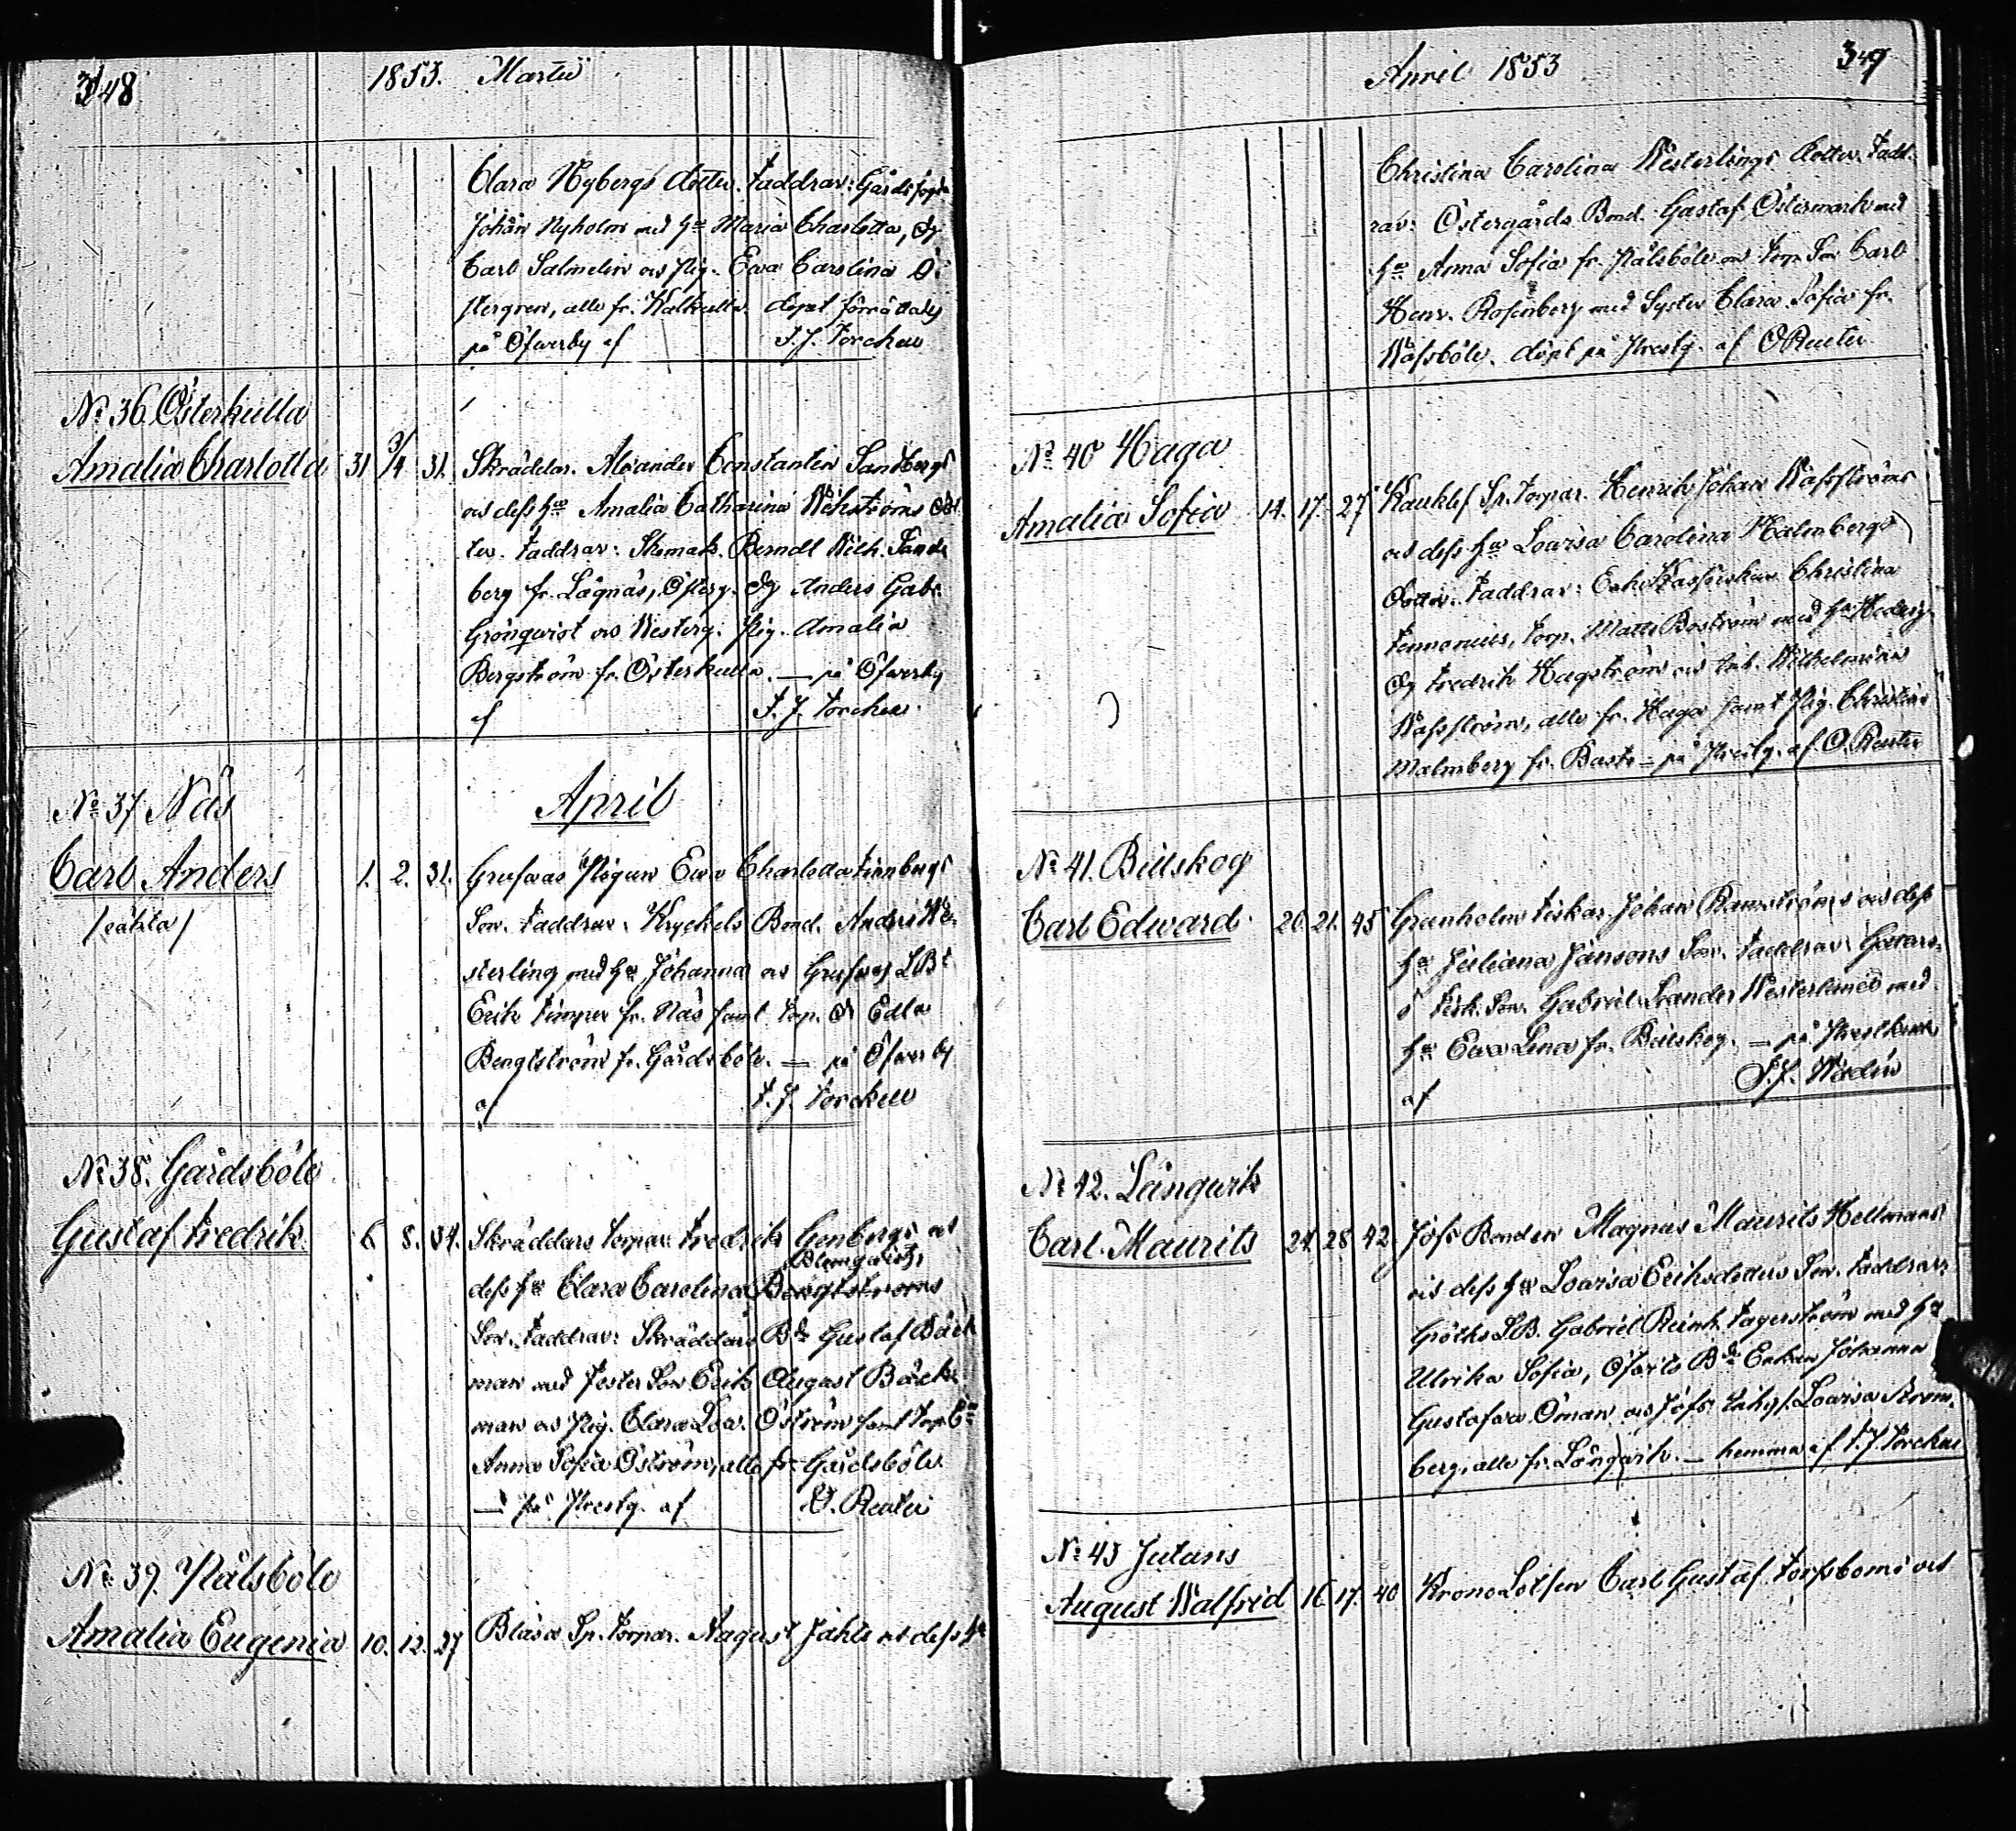 348
1853. Martii
Clara Nybergs dotter. Faddrar: Gårdsfogd.
Johan Nyholm med hu Maria Charlotta, Dg
Carl Salmelin och Pig. Ewa Carolina Ö-
stergren, alle fr. Kalkulla. döpt förrättades
på Öfwerby af F. J. Forchell
No 36. Österkulla
Amalia Charlotta 31 3/4 31. Skräddar. Alexander Constantin Sandbergs
och dess hu Amalia Catharina Wikströms dot-
ter. Faddrar: Skomak. Berndt Wilh. Sand-
berg fr. Lågnäs, Österg. Dg Anders Gabr.
Grönqwist och Westerg. Pig. Amalia
Bergström fr. Österkulla. — på Öfwerby
af F. J. Forchell
April
No 37 Näs
Carl Anders 1. 2. 31. Grefwas Pigan Ewa Charlotta Finnbergs
/oäkta/
Son. Faddrar: Kryckels Bond. Anders We-
sterling med hu Johanna och Grefwas LBd
Erik Timper fr. Näs samt Torp. Dr Edla
Bengtström fr. Gårdsböle. — på Öfwerby
af F. J. Forchell
No 38. Gårdsböle
Gustaf Fredrik 6. 8. 34. Skräddars Torpar. Fredrik Genbergs och
Blomqwists
dess hu Clara Carolina Bengtströms
Son. Faddrar: Skräddars Bde Gustaf Bäck-
man med Foster Son Erik August Bäck-
man och Pig. Clara Lov. Öström samt Torp.
Anna Sofia Öström, alle fr. Gårdsböle
— på Prestg. af O. Reuter
No 39. Pålsböle
Amalia Eugenia 10. 12. 27 Blåsa Sp. Torpar. August Jahls och dess hu
April 1853
349
Christina Carolina Westerlings dotter. Fadd-
rar: Östergårds Bond. Gustaf Östermark med
hu Anna Sofia fr. Pålsböle och Torp. Son Carl
Henr. Rosenberg med Syster Clara Sofia fr.
Wassböle. döpt på Prestg. af O Reuter
No 40 Haga
Amalia Sofia 14. 17. 27 Sp. Torpar. Henrik Johan Wassströms
och dess hu Lovisa Carolina Malmbergs
dotter. Faddrar: Christina
Torp. Matts Boström med hu Hedvig
Dg Fredrik Hagström och Wilhelmina
Wassström, alle fr. Haga samt Pig. Christina
Malmberg fr. Basto — på Prestg. af O. Reuter
No 41. Billskog
Carl Edward 20. 21. 45 Granholm Fiskar. Johan Ramströms och dess
hu Juliana Jansons Son. Faddrar:
ö Fisk. Son. Gabriel Leander Westerlund med
hu Ewa Lena fr. Billskog. — på
af Widén
No 42. Långwik
Carl Maurits 24. 28 42 Jofs Bonden Magnus Maurits Hellmans
och dess hu Lovisa Eriksdotters Son. Faddrar:
Gröths LB. Gabriel Reinh. Fagerström med hu
Ulrika Sofia, Bde Enkan Johanna
Gustafwa Öman, och Jofs Lovisa Strom-
berg, alle fr. Långwik. — hemma af F. J. Forchell
No 43 Jutans
August Walfrid 16 17. 40 Krono Lotsen Carl Gustaf och